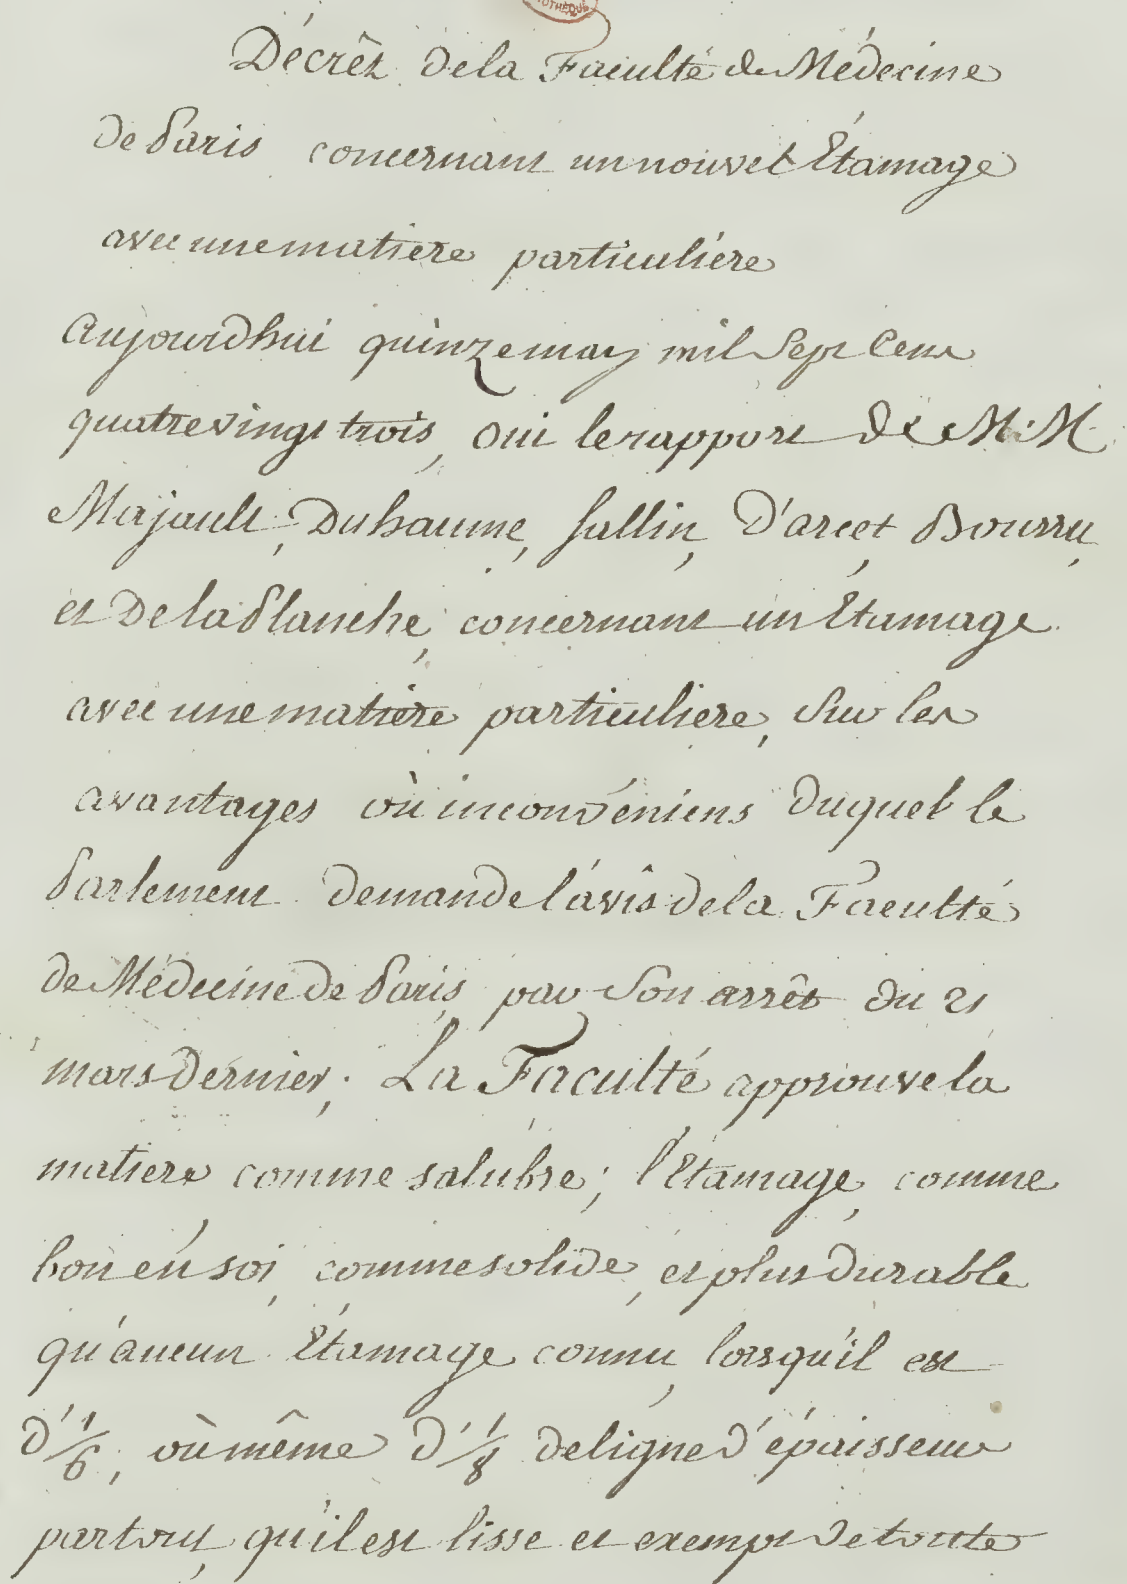 Décrêt de la Faculté de Médecine
de Paris concernant un nouvel Étamage
avec une matiere particuliére
Aujourdhui quinze may mil Sept Cent
quatrevingt trois, oui le rapport de M.M.
Majault, Duhaume, Sallin, D'arcet Bourru,
et De la Planche, concernant un Étamage
avec une matiére particuliere, Sur les
avantages où inconvéniens duquel le
Parlement demande l'avis de la Faculté
de Médecine de Paris par Son arrêt du 21
mars Dernier; La Faculté approuve la
matiere comme salubre; l'Étamage, comme
bon en soi, comme solide, et plus durable
qu'aucun Étamage connu, lorsqu'il est
d'1/6, où même d'1/8 de ligne d'épaisseur
partout, qu'il est lisse et exempt de toute